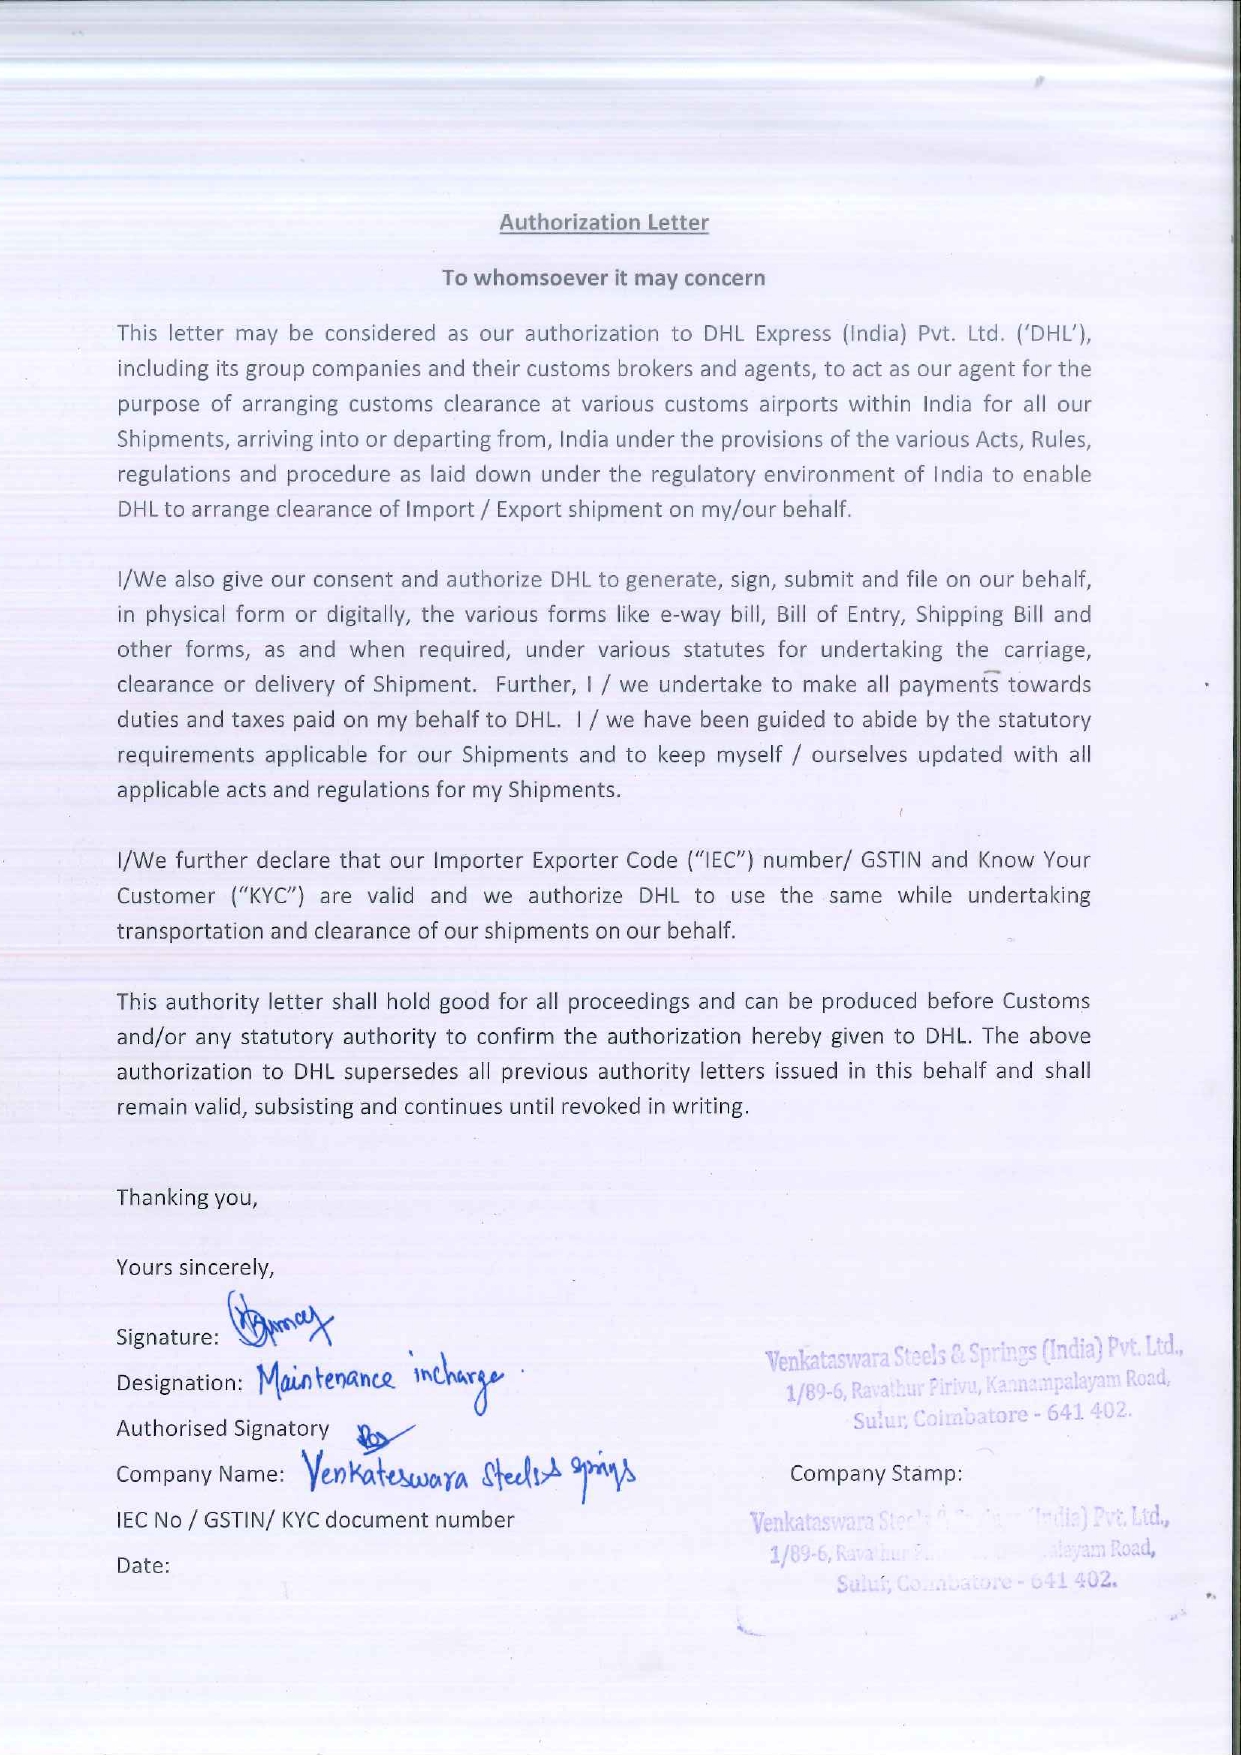 Authorization Letter
To whomsoever it may concern
This letter may be considered as our authorization to DHL Express (India) Pvt. Ltd. ('DHL'),
including its group companies and their customs brokers and agents, to act as our agent for the
purpose of arranging customs clearance at various customs airports within India for all our
Shipments, arriving into or departing from, India under the provisions of the various Acts, Rules,
regulations and procedure as laid down under the regulatory environment of India to enable
DHL to arrange clearance of Import / Export shipment on my/our behalf.
I/We also give our consent and authorize DHL to generate, sign, submit and file on our behalf,
in physical form or digitally, the various forms like e-way bill, Bill of Entry, Shipping Bill and
other forms, as and when required, under various statutes for undertaking the carriage,
clearance or delivery of Shipment. Further, I / we undertake to make all payments towards
duties and taxes paid on my behalf to DHL. I / we have been guided to abide by the statutory
requirements applicable for our Shipments and to keep myself / ourselves updated with all
applicable acts and regulations for my Shipments.
I/We further declare that our Importer Exporter Code ("IEC") number/ GSTIN and Know Your
Customer ("KYC") are valid and we authorize DHL to use the same while undertaking
transportation and clearance of our shipments on our behalf.
This authority letter shall hold good for all proceedings and can be produced before Customs
and/or any statutory authority to confirm the authorization hereby given to DHL. The above
authorization to DHL supersedes all previous authority letters issued in this behalf and shall
remain valid, subsisting and continues until revoked in writing.
Thanking you,
Yours sincerely,
Signature:
Designation: Maintenance incharge
Authorised Signatory
Company Name: Venkateswara Steels & Springs
IEC No / GSTIN/ KYC document number
Date:
Venkataswara Steels & Springs (India) Pvt. Ltd.,
1/89-6, Ravathur Pirivu, Kannampalayam Road,
Sulur, Coimbatore - 641 402.
Company Stamp:
Venkataswara India) Pvt. Ltd.,
1/89-6, Road,
Sulur, Coimbatore - 641 402.